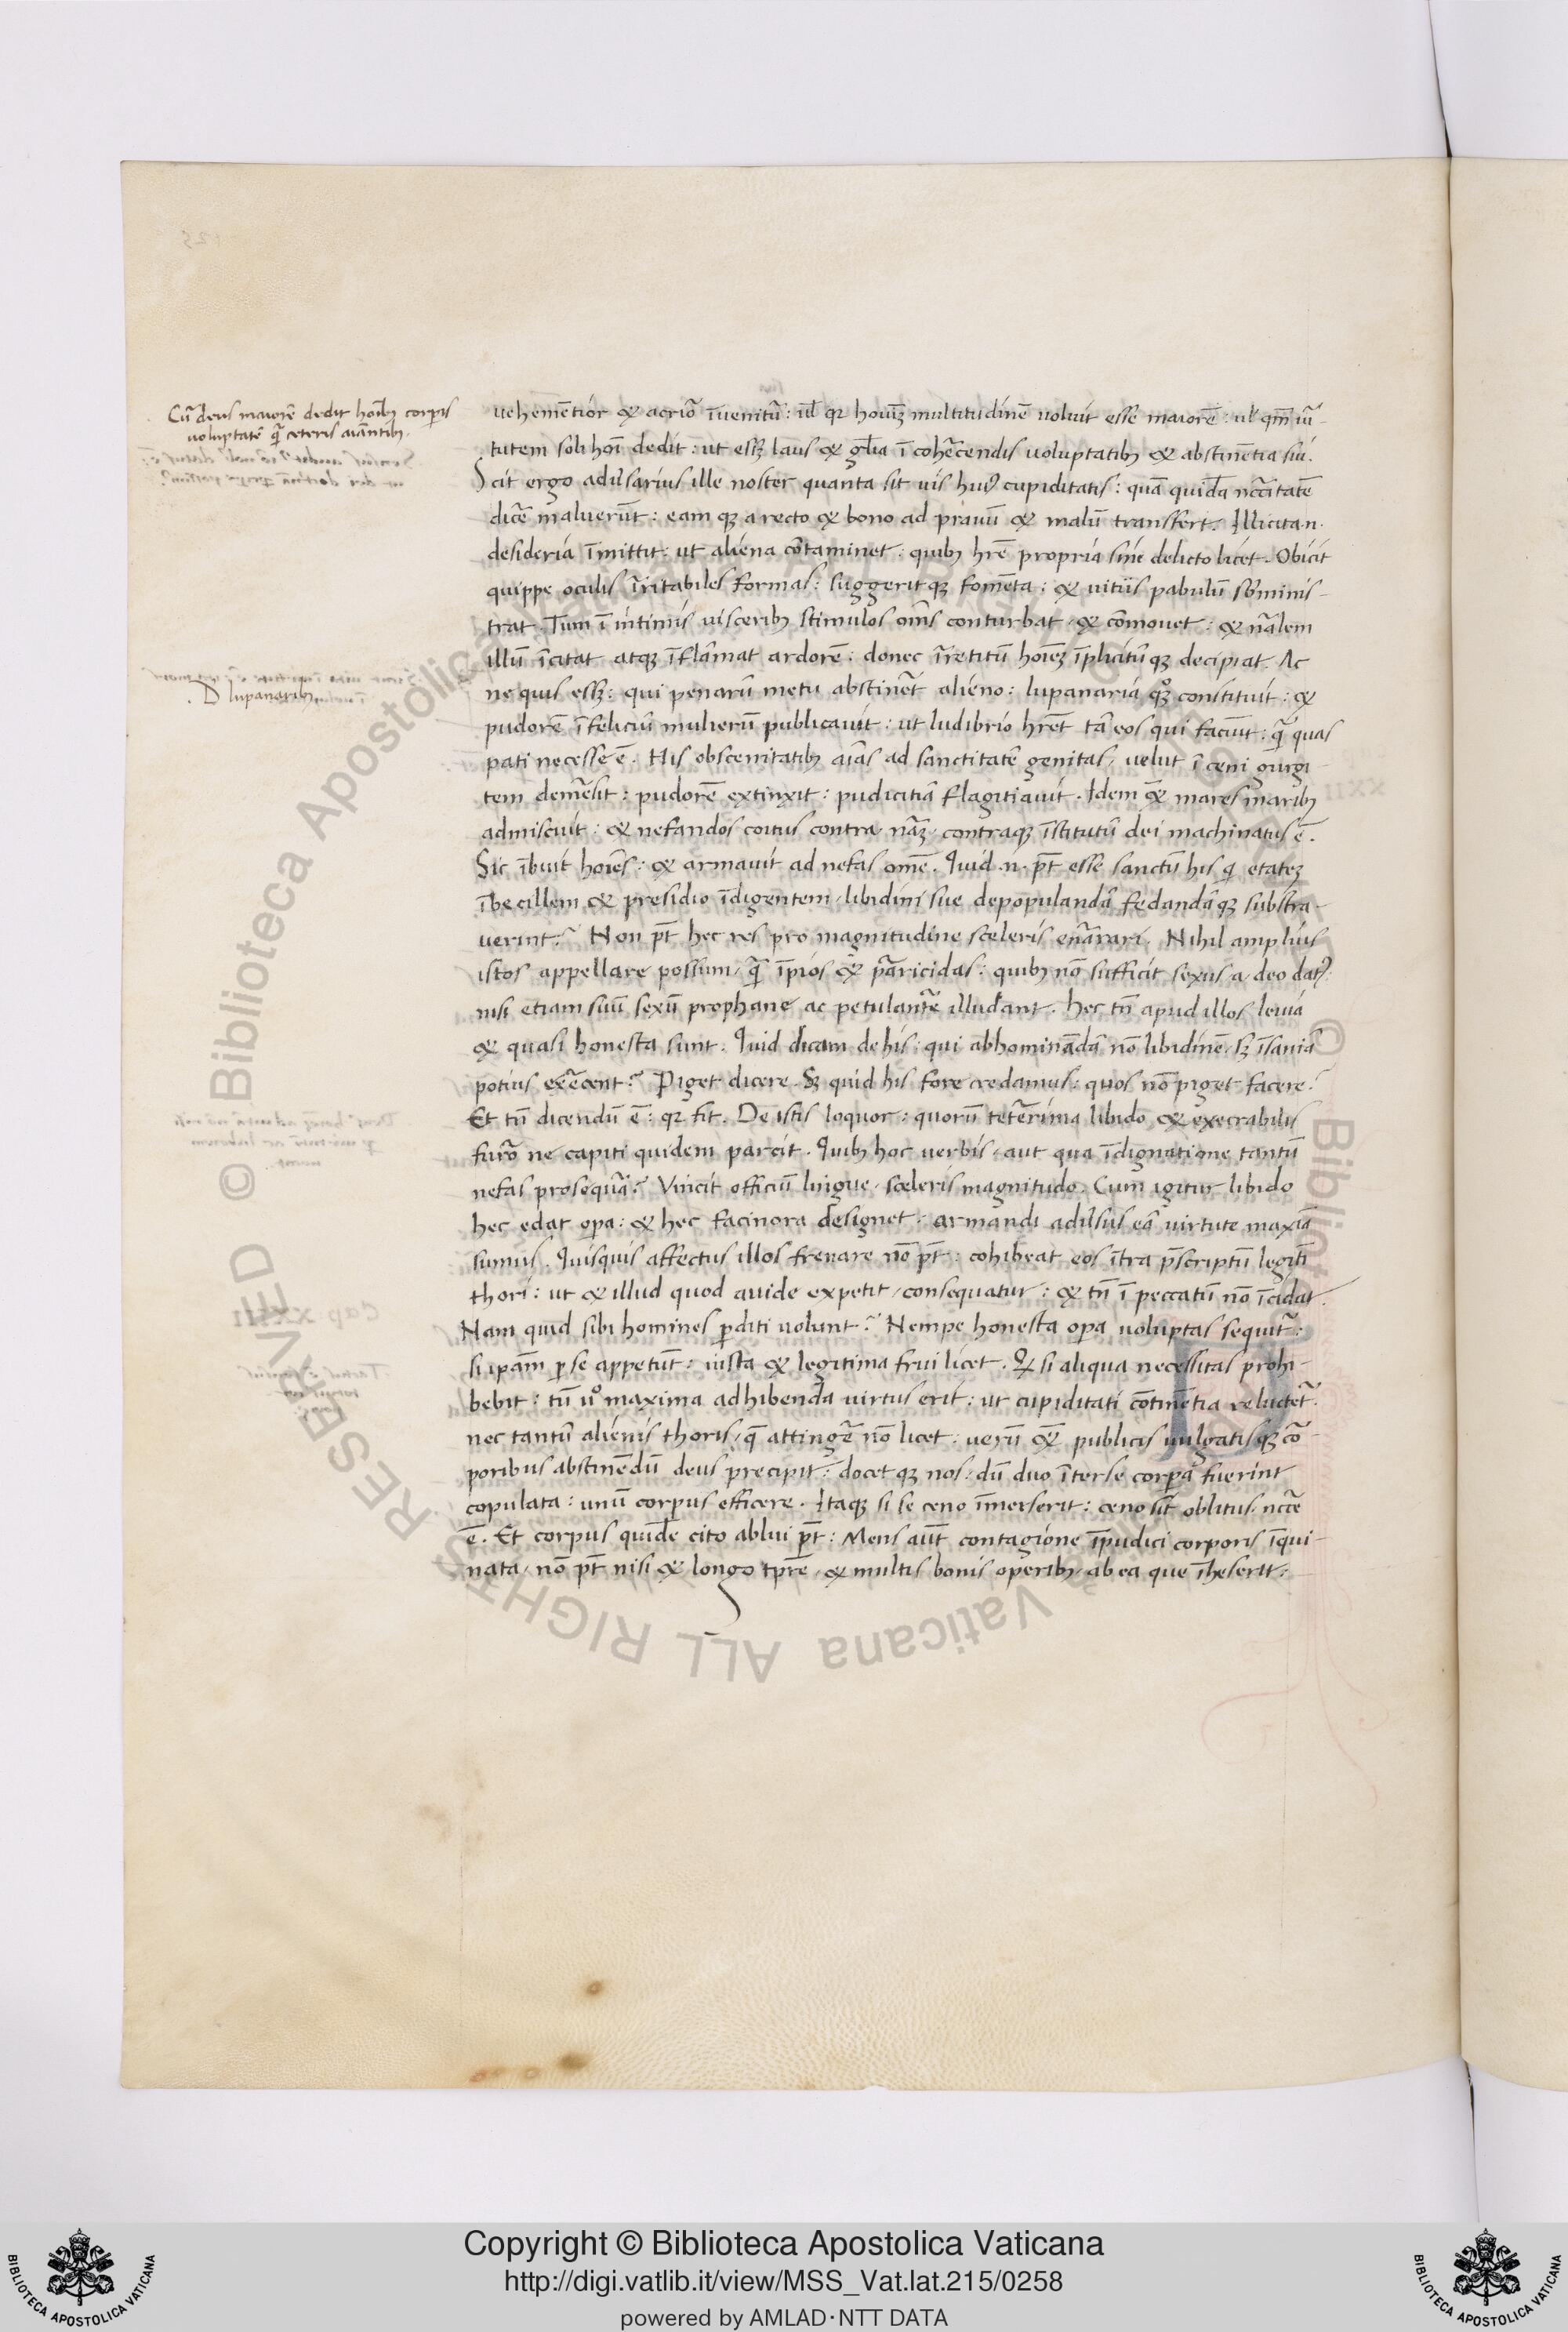 Cū deus maiorē dedit hoībꝫ corpis
voluptatē q̄ ceteris aīantibꝫ.
uehemētior & acrio᷑ īuenit᷑: ul̄ qꝛ hoīuꝫ multitudinē uoluit esse maiorē: ul̄ qm̄ uir᷑-
tutem soli hoī dedit: ut esꝫ laus & gl̄ia ī coherc̄endis uoluptatibꝫ & abstinētia sui.
Scit ergo aduersarius ille noster quanta sit uis huiꝰ cupiditatis: quā quidā ncc̄itatē
dicē maluerūt: eam qꝫ a recto & bono ad prauū & malū transfert. Illicita .n.
desideria īmittit: ut aliena cōtaminet: quibꝫ hrē propria sine delicto licet. Obicit
quippe oculis irritabiles formas: suggerit qꝫ fomēta: & uitiis pabulū sb̄minis-
trat. Tum ī intimis uisceribꝫ stimulos om̄s conturbat & cōmouet: & nāлem
illū īcitat atqꝫ īflāmat ardorē: donec irretitū hoīeꝫ īplicitū qꝫ decipiat. Ac
D lupanaribꝫ
ne quis esꝫ: qui penarū metu abstinēt alieno: lupanaria qꝫ constituit: &
pudorē īfeliciū mulierū publicauit: ut ludibrio hrēt tā eos qui faciūt: q̄ quas
pati necesse ē. His obscenitatibꝫ aīas ad sanctitatē genitas, uelut ī ceni gurgi-
tem demersit: pudorē extinxit: pudicitiā flagitiauit. Idem &̄ mares maribꝫ
admiscuit: & nefandos coitus contra nāꝫ contraqꝫ īstitutū dei machinatus ē.
Sic ībuit hoīes: & armauit ad nefas omē. Quid .n. pt̄ esse sanctū his qͥ etateꝫ
ībecillem & presidio īdigentem, libidini sue depopulandā fedandā qꝫ substra-
uerint? Non pt̄ hec res pro magnitudine sceleris enarrari. Nihil amplius
istos appellare possum, q̄ īpios & parricidas: quibꝫ nō sufficit sexus a deo datꝰ:
nisi etiam suū sexū prophane ac petulantē illudant. Hec tn̄ apud illos leuia
& quasi honesta sunt. Quid dicam de his: qui abhominādā nō libidinē, sꝫ īsaniā
potius exercent? Piget dicere. Sꝫ quid his fore credamus: quos nō piget facere?
Et tn̄ dicendū ē: qꝛ fit. De istis loquor: quorū teterrima libido & execrabilis
furo᷑ ne capiti quidem parcit. Quibꝫ hoc uerbis, aut qua īdignatione tantū
nefas prosequar? Vincit officiū lingue, sceleris magnitudo. Cum igitur libido
hec edat opa: & hec facinora designet: armandi aduersus eā uirtute maxīa
sumus. Quisquis affectus illos frenare nō pt̄: cohibeat eos ītra pscriptū legiti
thori: ut & illud quod auide expetit, consequatur: & tn̄ ī peccatū nō īcidat.
Nam quid sibi homines pditi uolunt? Nempe honesta opa uoluptas sequit᷑:
si ipam p se appetūt: iusta & legitima frui licet. Q si aliqua necessitas prohi-
bebit: tū uͦ maxima adhibenda uirtus erit: ut cupiditati cōtinētia reluctet᷑.
nec tantū alienis thoris, q̄ attingē nō licet: uerū &̄ publicis uulgatis qꝫ co᷑-
poribus abstinēdū deus precipit: docet qꝫ nos: dū duo īter se corpa fuerint
copulata: unū corpus efficere. Itaqꝫ si se ceno īmerserit: ceno sit oblitus ncc̄e
ē. Et corpus quidē cito ablui pt̄: Mens aūt contagione īpudici corporis īqui-
nata, nō pt̄ nisi & longo tprē, & multis bonis operibꝫ ab ea que īheserit:
Copyright © Biblioteca Apostolica Vaticana
http://digi.vatlib.it/view/MSS_Vat.lat.215/0258
powered by AMLAD·NTT DATA